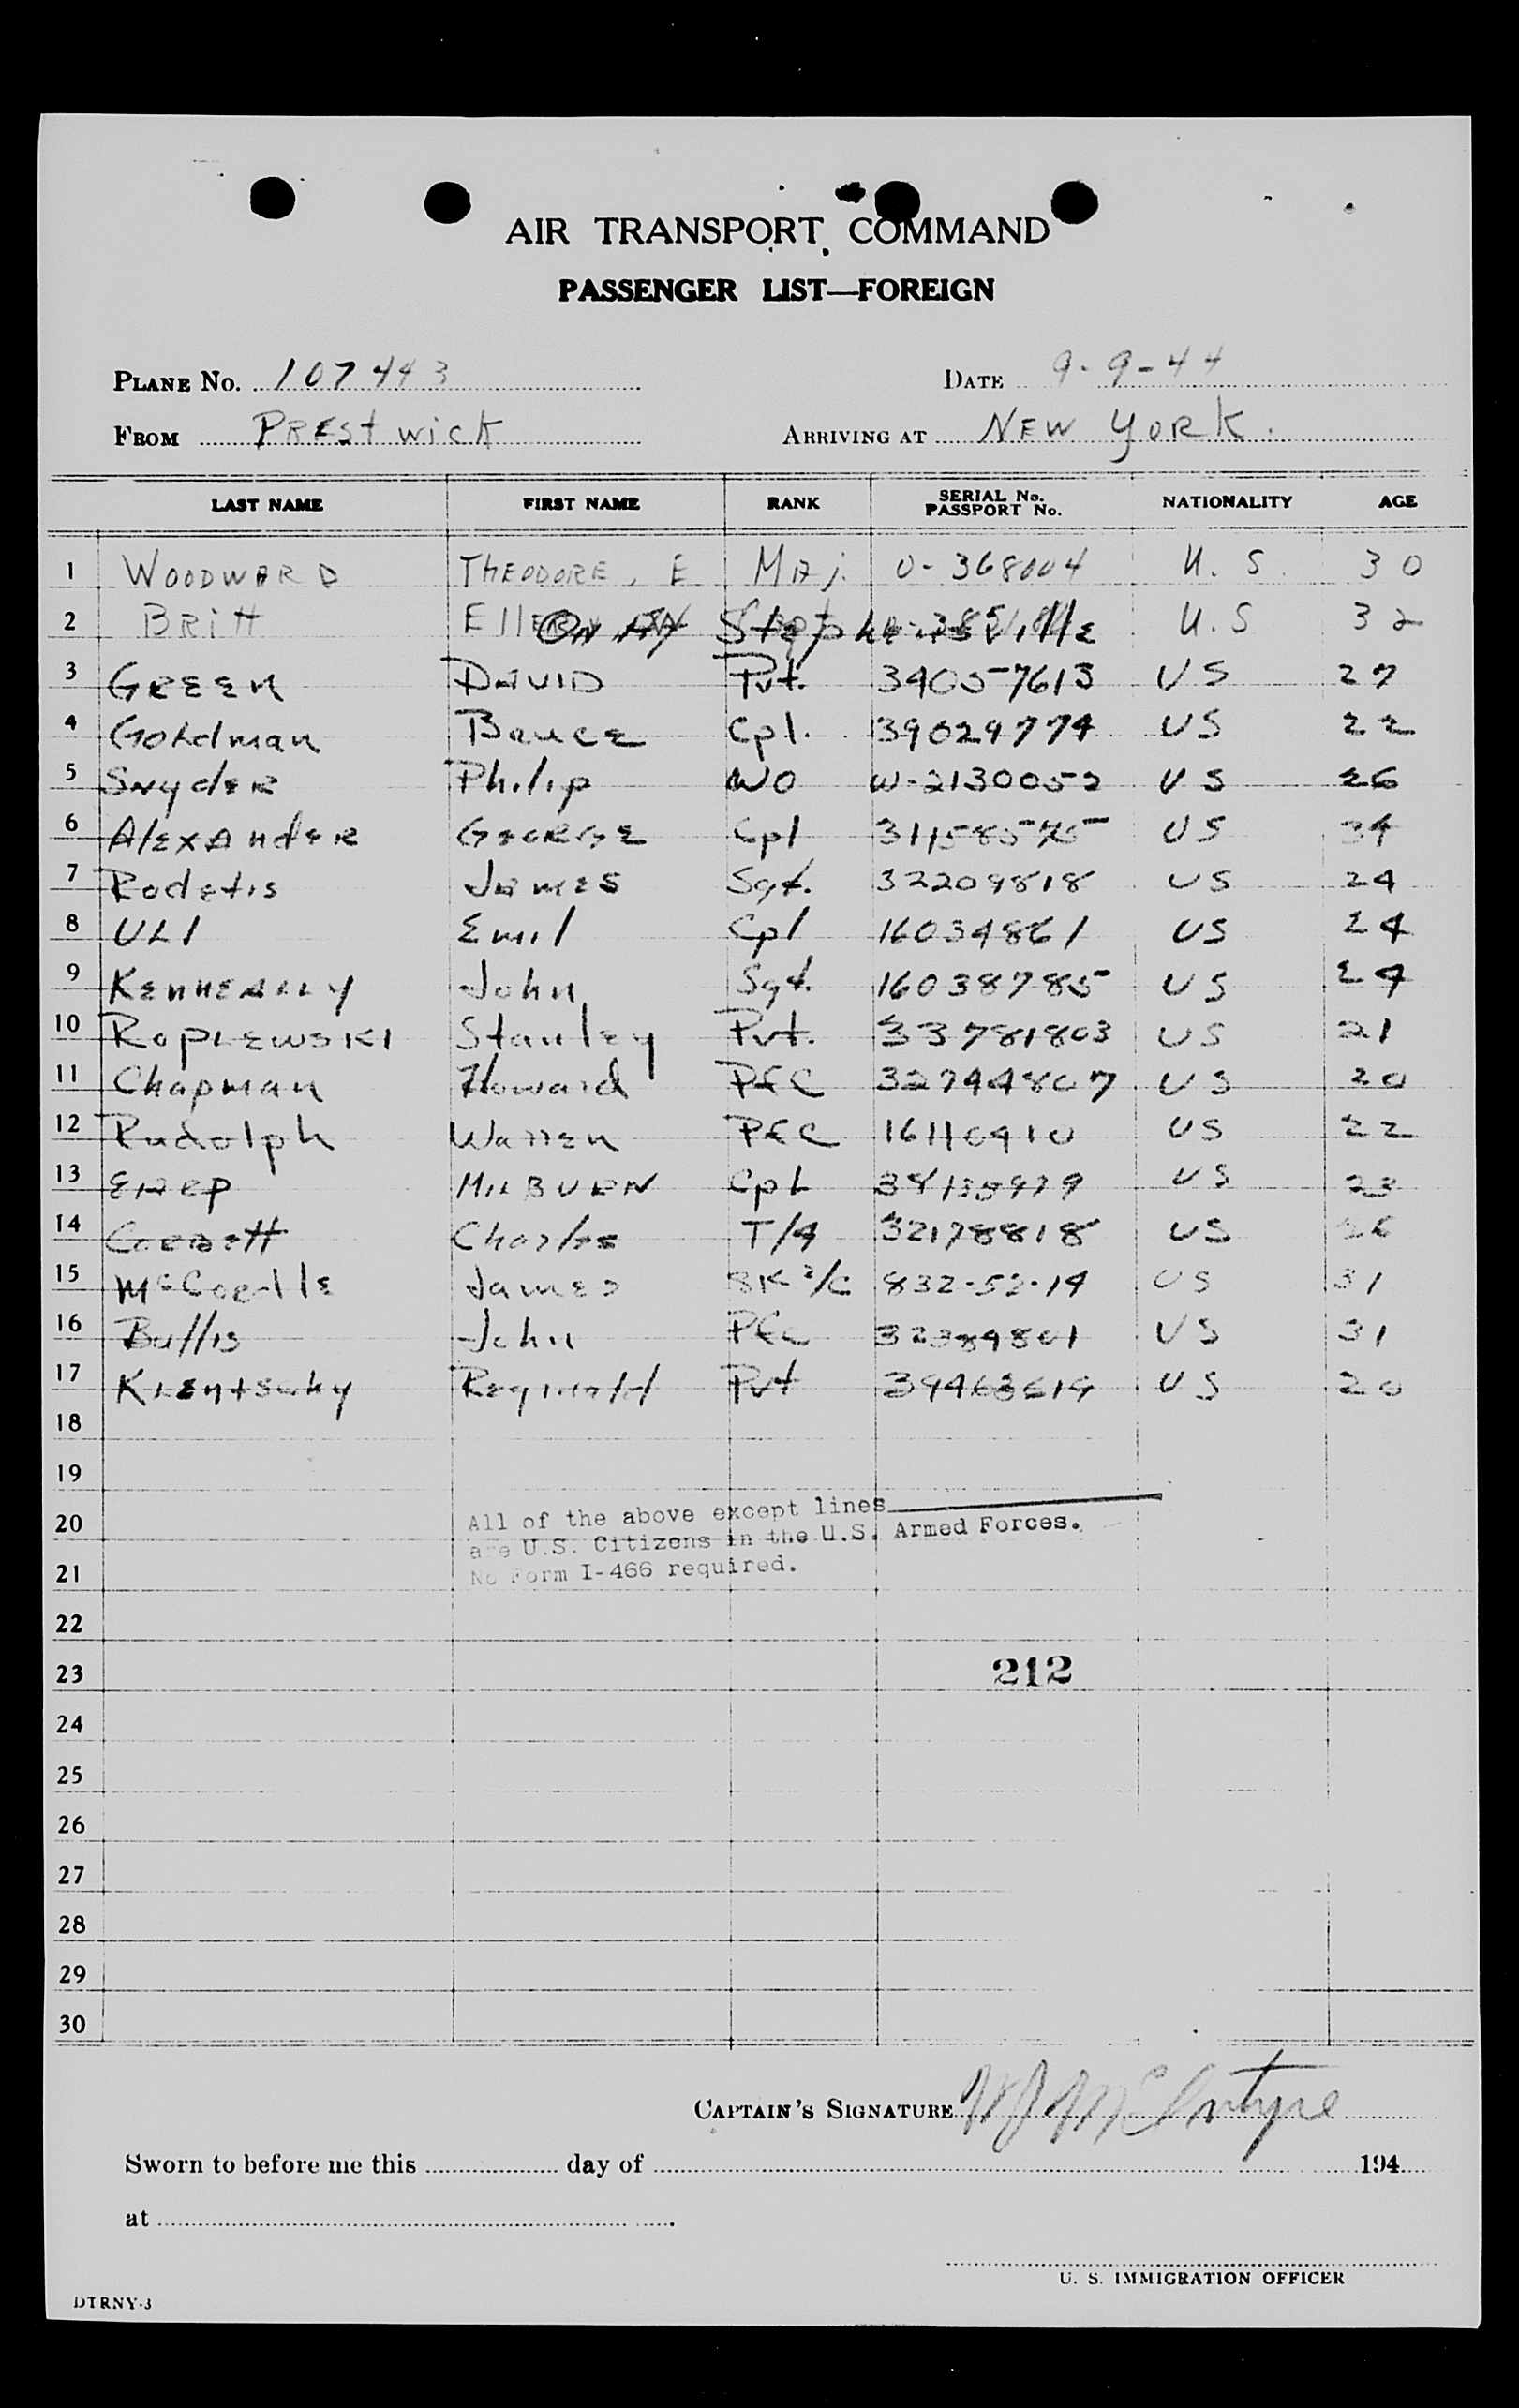 AIR TRANSPORT COMMAND
PASSENGER LIST—FOREIGN
PLANE No. 107443 DATE 9-9-44
FROM PRESTWICK ARRIVING AT NEW YORK.
LAST NAME FIRST NAME RANK SERIAL No. PASSPORT No. NATIONALITY AGE
1 WOODWARD THEODORE, E Maj. O-368004 U.S. 30
2 Britt Stephensville U.S 32
3 GREEN DAVID Pvt. 34057613 US 27
4 Goldman Bruce Cpl. 39029774 US 22
5 Snyder Philip WO W-2130052 US 26
6 Alexander George Cpl 31158575 US 34
7 Rodetis James Sgt. 32209818 US 24
8 ULI Emil Cpl 16034861 US 24
9 Kenneally John Sgt. 16038785 US 24
10 Roplewski Stanley Pvt. 33781803 US 21
11 Chapman Howard PFC 32744807 US 20
12 Rudolph Warren PFC 16110410 US 22
13 EARP MILBURN Cpl US 23
14 Corbett Charles T/4 32178818 US 26
15 McCorkle James SK2/C 832-52-14 US 31
16 Bullis John PFC 32389801 US 31
17 Reginald Pvt US 20
18
19
20
21
All of the above except lines
are U.S. Citizens in the U.S. Armed Forces.
No Form I-466 required.
22
23 212
24
25
26
27
28
29
30
CAPTAIN'S SIGNATURE W J McIntyre
Sworn to before me this day of 194
at
U. S. IMMIGRATION OFFICER
DTRNY-3